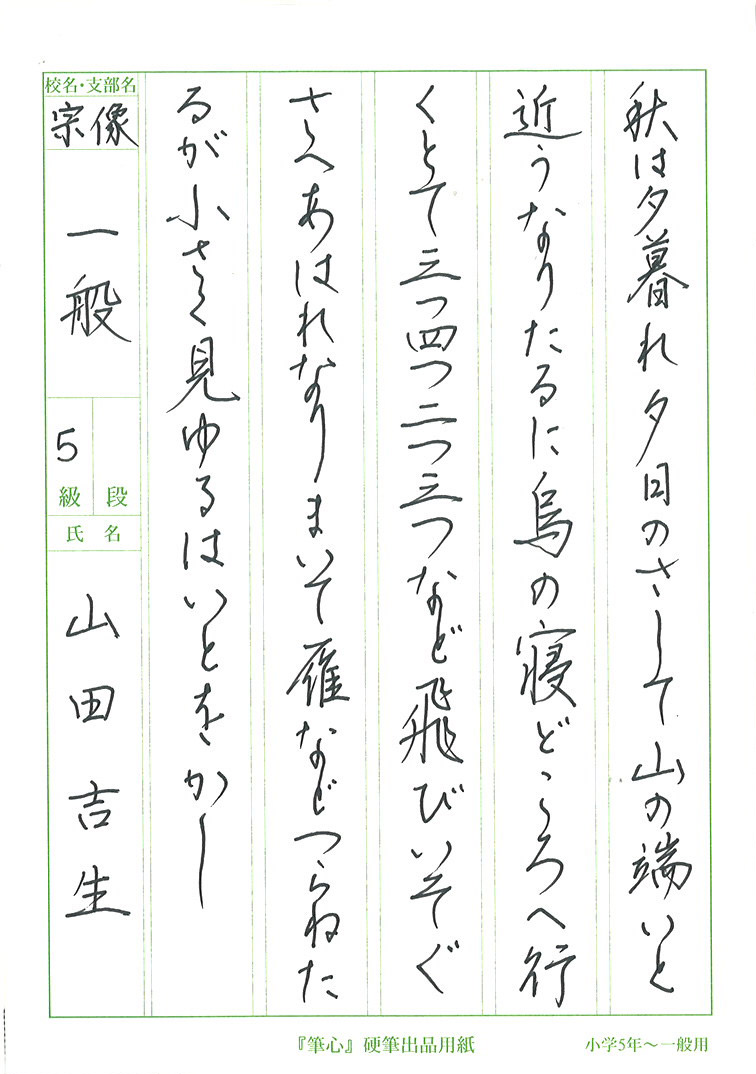 秋は夕暮れ夕日のさして山の端いと
近うなりたるに烏の寝どころへ行
くとて三つ四つ二つ三つなど飛びいそぐ
さへあはれなりまいて雁などつらねた
るが小さく見ゆるはいとをかし
校名・支部名
宗像
一般
5級 段
氏名
山田吉生
『筆心』硬筆出品用紙
小学5年～一般用